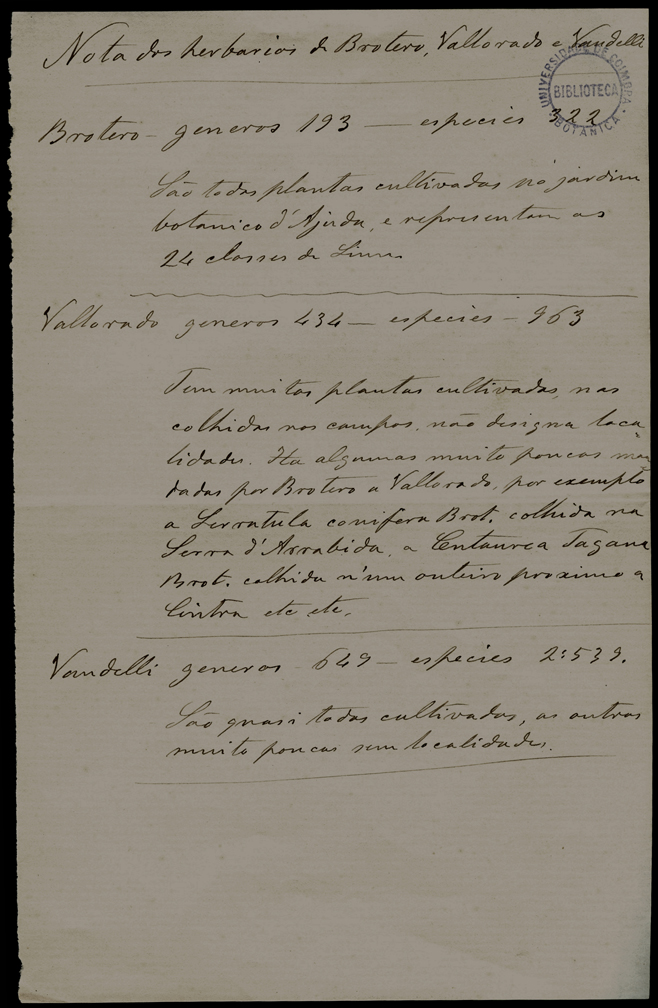 Nota dos herbarios de Brotero, Vallorado e Vandelli
UNIVERSIDADE DE COIMBRA
BIBLIOTECA
BOTANICA
Brotero - generos 193 — especies 322
São todas plantas cultivadas no jardim
botanico d'Ajuda, e representam as
24 classes de Linn.
Vallorado generos 434 — especies - 963
Tem muitas plantas cultivadas, nas
colhidas nos campos, não designa loca
lidades. Ha algumas muito poucas man
dadas por Brotero a Vallorado, por exemplo
a Serratula conifera Brot. colhida na
Serra d'Arrabida, a Centaurea Tagana
Brot. colhida n'um outeiro proximo a
Cintra etc etc.
Vandelli generos - 649 — especies 2:539.
São quasi todas cultivadas, as outras
muito poucas sem localidades.